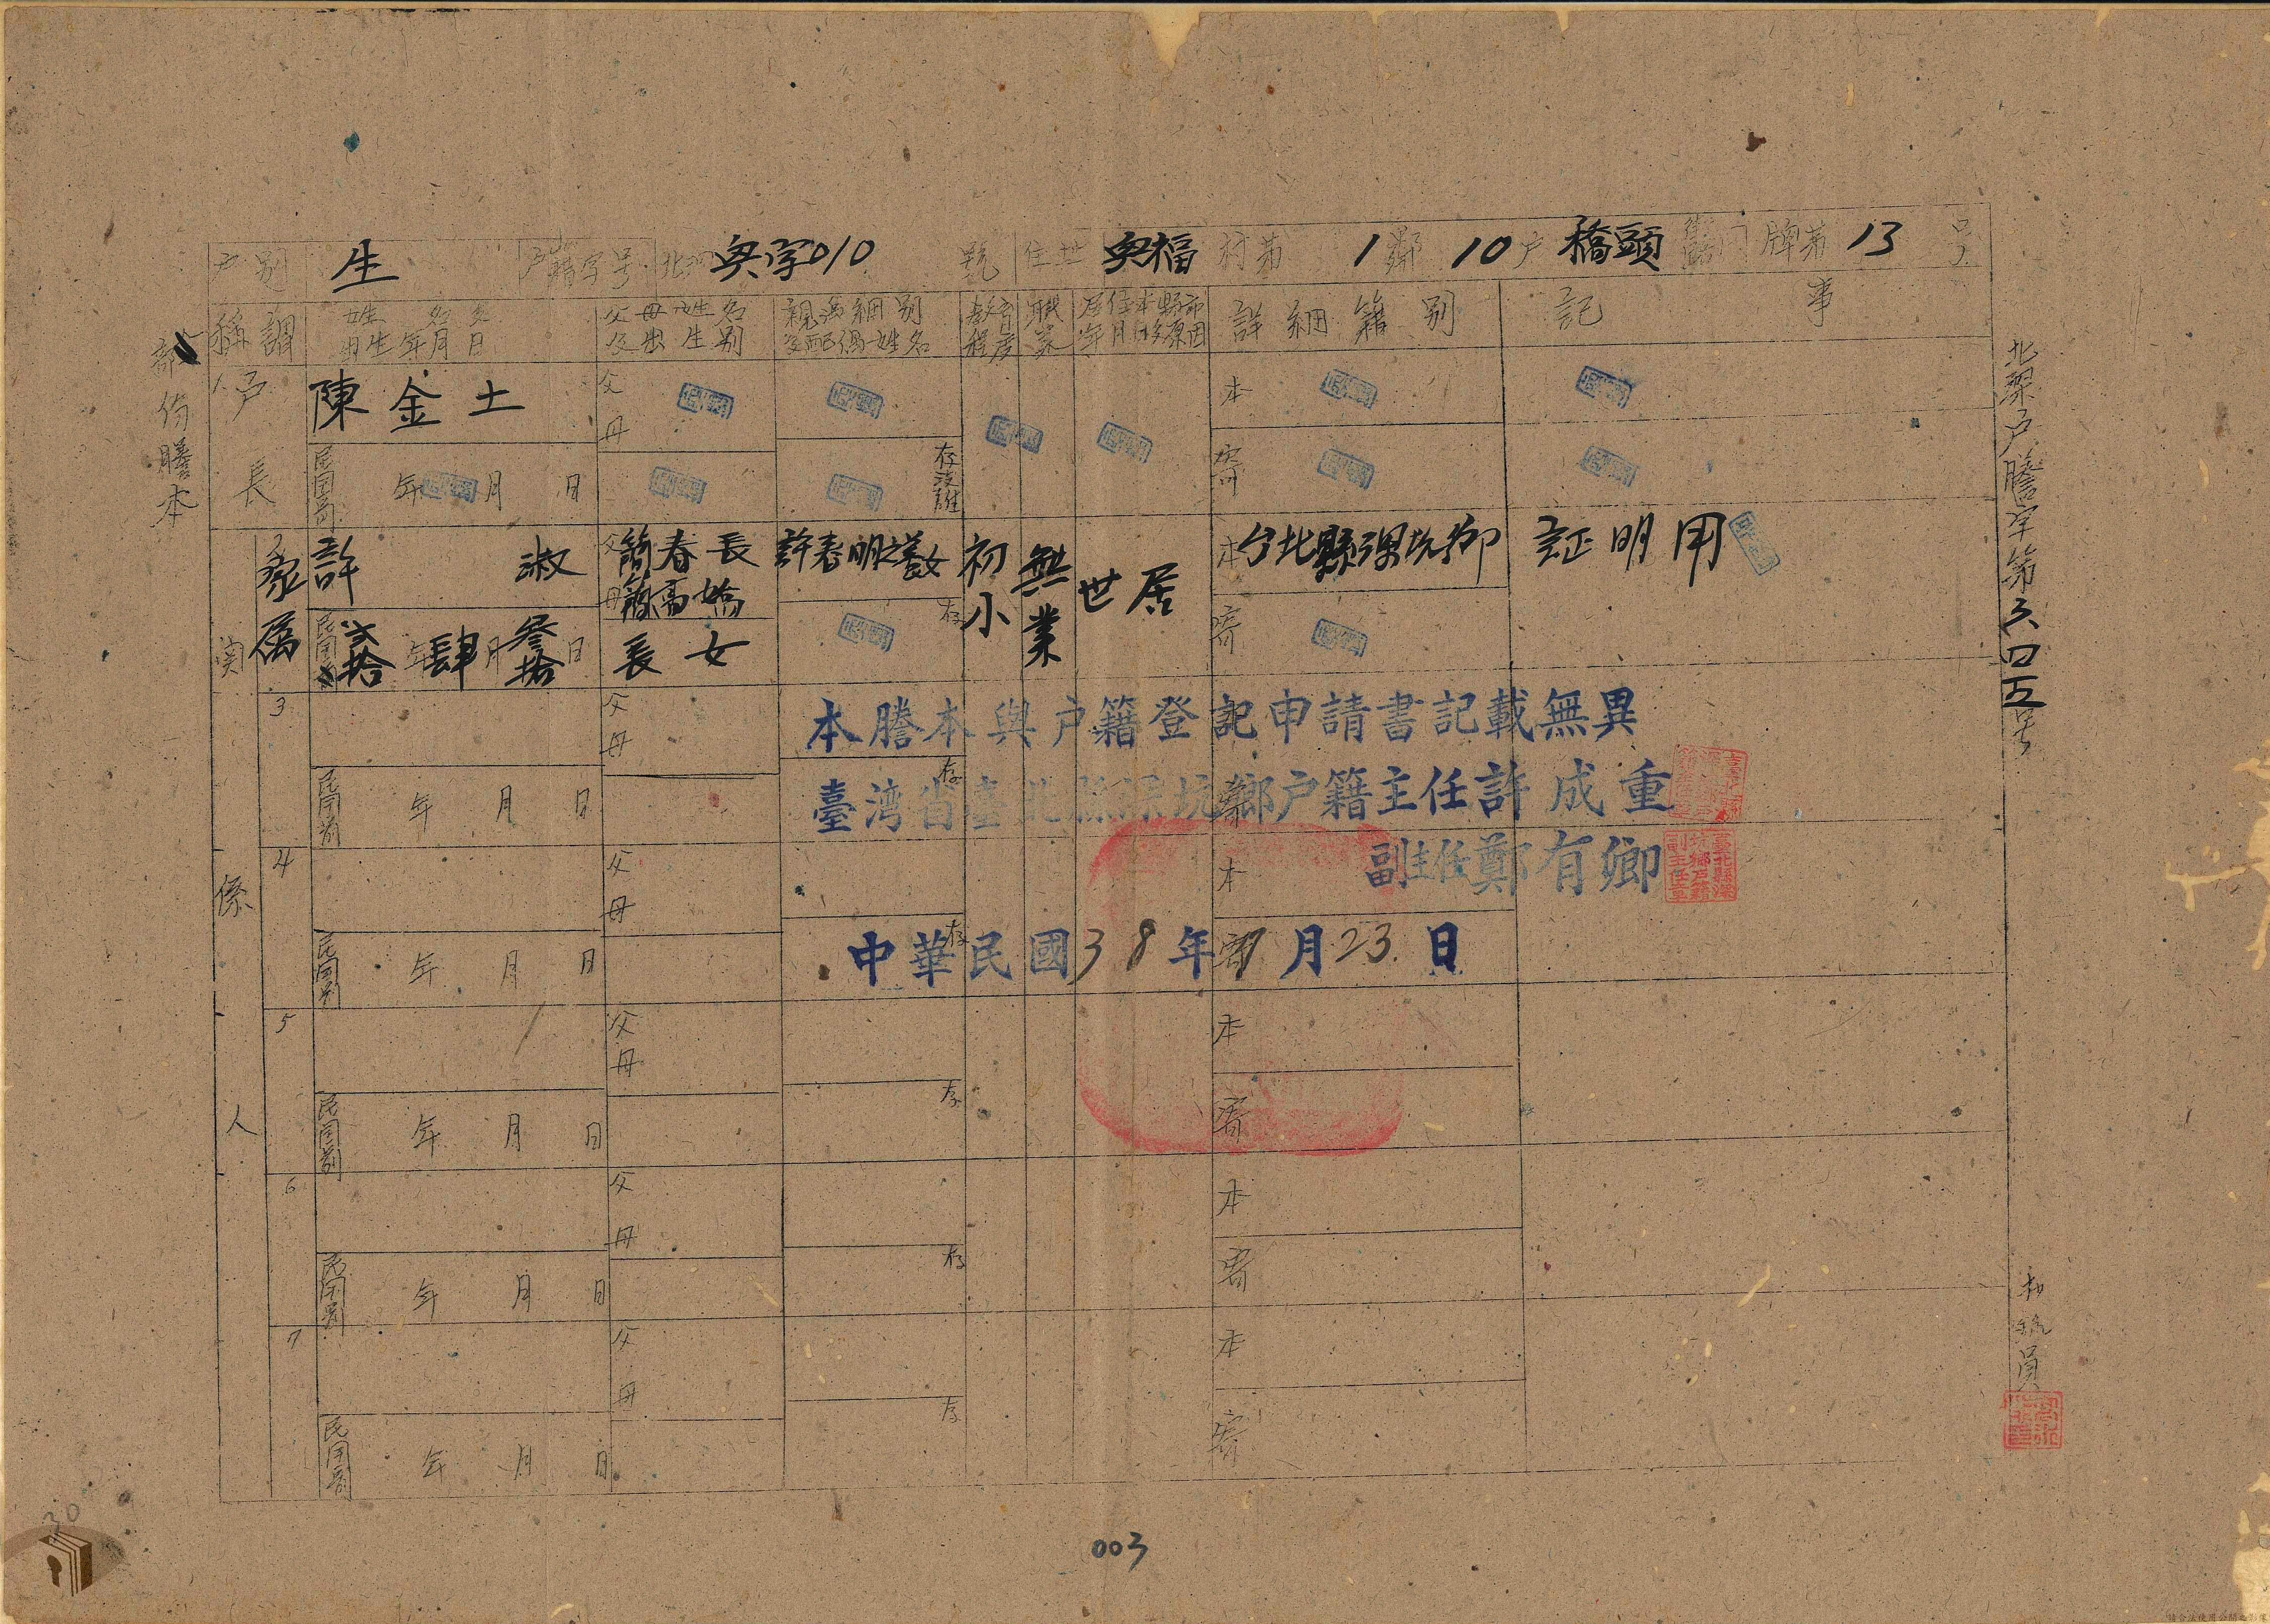 部份謄本
戶別 生 戶籍字号 北深 字010 號 住址 福 村第 1 鄰 10 戶 橋頭 門牌第 13 号
稱謂 姓名 出生年月日 父母姓名及出生別 親屬細別及配偶姓名 教育程度 職業 居住本縣市年月及移原因 詳細籍別 記事
1 戶長 陳金土 父 母 本
民国前 年 月 日 存 寄
2 家屬 許淑 父 簡春長 母 簡高嬌 許春明之養女 初小 無業 世居 本 台北縣深坑鄉 証明用
民国 弍拾 年 肆 月 叁拾 日 長女 存 寄
関係人
3 父 母
本謄本與戶籍登記申請書記載無異
民国前 年 月 日 存 寄
臺湾省臺北縣深坑鄉戶籍主任許成重
4 父 母 本
副主任鄭有卿
臺北縣深坑鄉戶籍副主任章
民国前 年 月 日 存 寄
中華民國38年7月23日
5 父 母 本
民国前 年 月 日 存 寄
6 父 母 本
民国前 年 月 日 存 寄
7 父 母 本
民国前 年 月 日 存 寄
北深戶謄字第六四五号
員
30
003